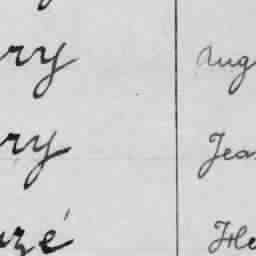 ry Aug
ry Jea
uzé He